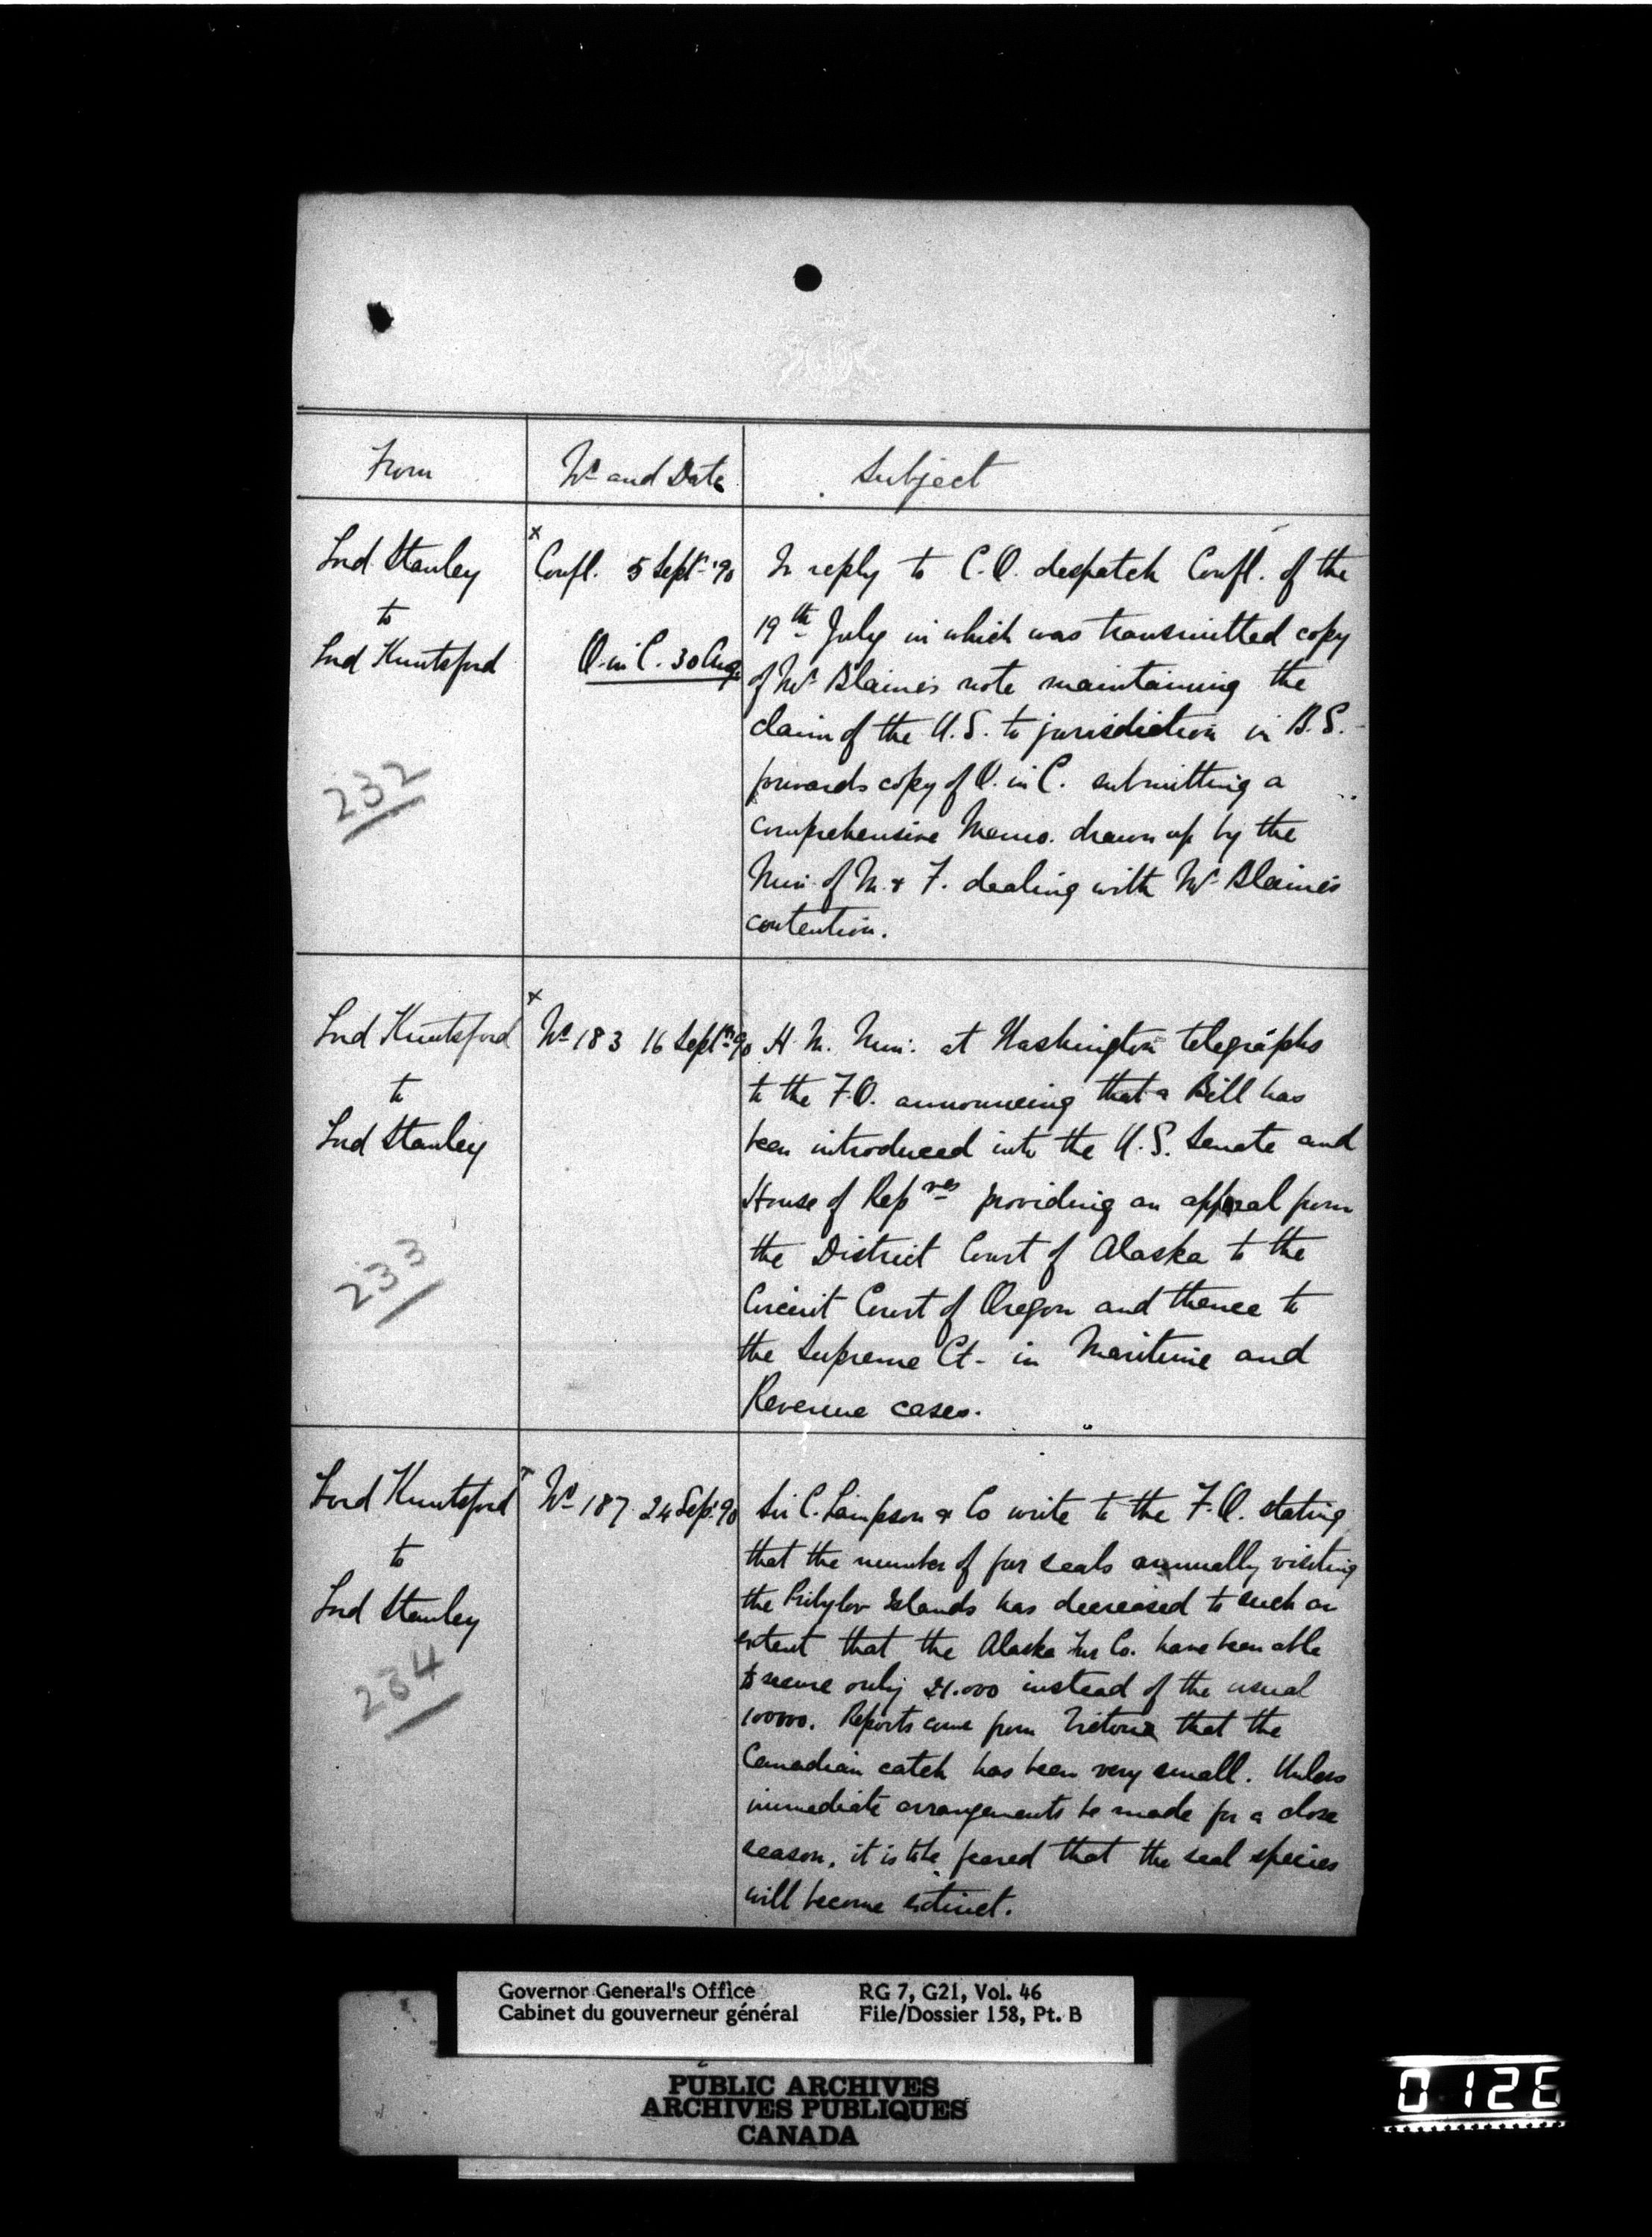 From
No and Date
Subject
Lord Stanley
to
Lord Knutsford
232
x
Confl. 5 Septr '90
O. in C. 30 Aug.
In reply to C.O. despatch Confl. of the
19th July in which was transmitted copy
of Mr Blaine's note maintaining the
claim of the U.S. to jurisdiction in B.S. -
forwards copy of O. in C. submitting a
comprehensive Memo. drawn up by the
Min. of M. & F. dealing with Mr Blaine's
contention.
Lord Knutsford
to
Lord Stanley
233
x
No 183 16 Septr 90
H. M. Min. at Washington telegraphs
to the F.O. announcing that a Bill has
been introduced into the U.S. Senate and
House of Repves providing an appeal from
the District Court of Alaska to the
Circuit Court of Oregon and thence to
the Supreme Ct. in Maritime and
Revenue cases.
Lord Knutsford
to
Lord Stanley
234
x
No 187 24 Sep. 90
Sir C. Lampson & Co write to the F.O. stating
that the number of fur seals annually visiting
the Pribylov Islands has decreased to such an
extent that the Alaska Fur Co. have been able
to secure only 21.000 instead of the usual
100000. Reports come from Victoria that the
Canadian catch has been very small. Unless
immediate arrangements be made for a close
season, it is to be feared that the seal species
will become extinct.
Governor General's Office RG 7, G21, Vol. 46
Cabinet du gouverneur général File/Dossier 158, Pt. B
PUBLIC ARCHIVES
ARCHIVES PUBLIQUES
CANADA
0126